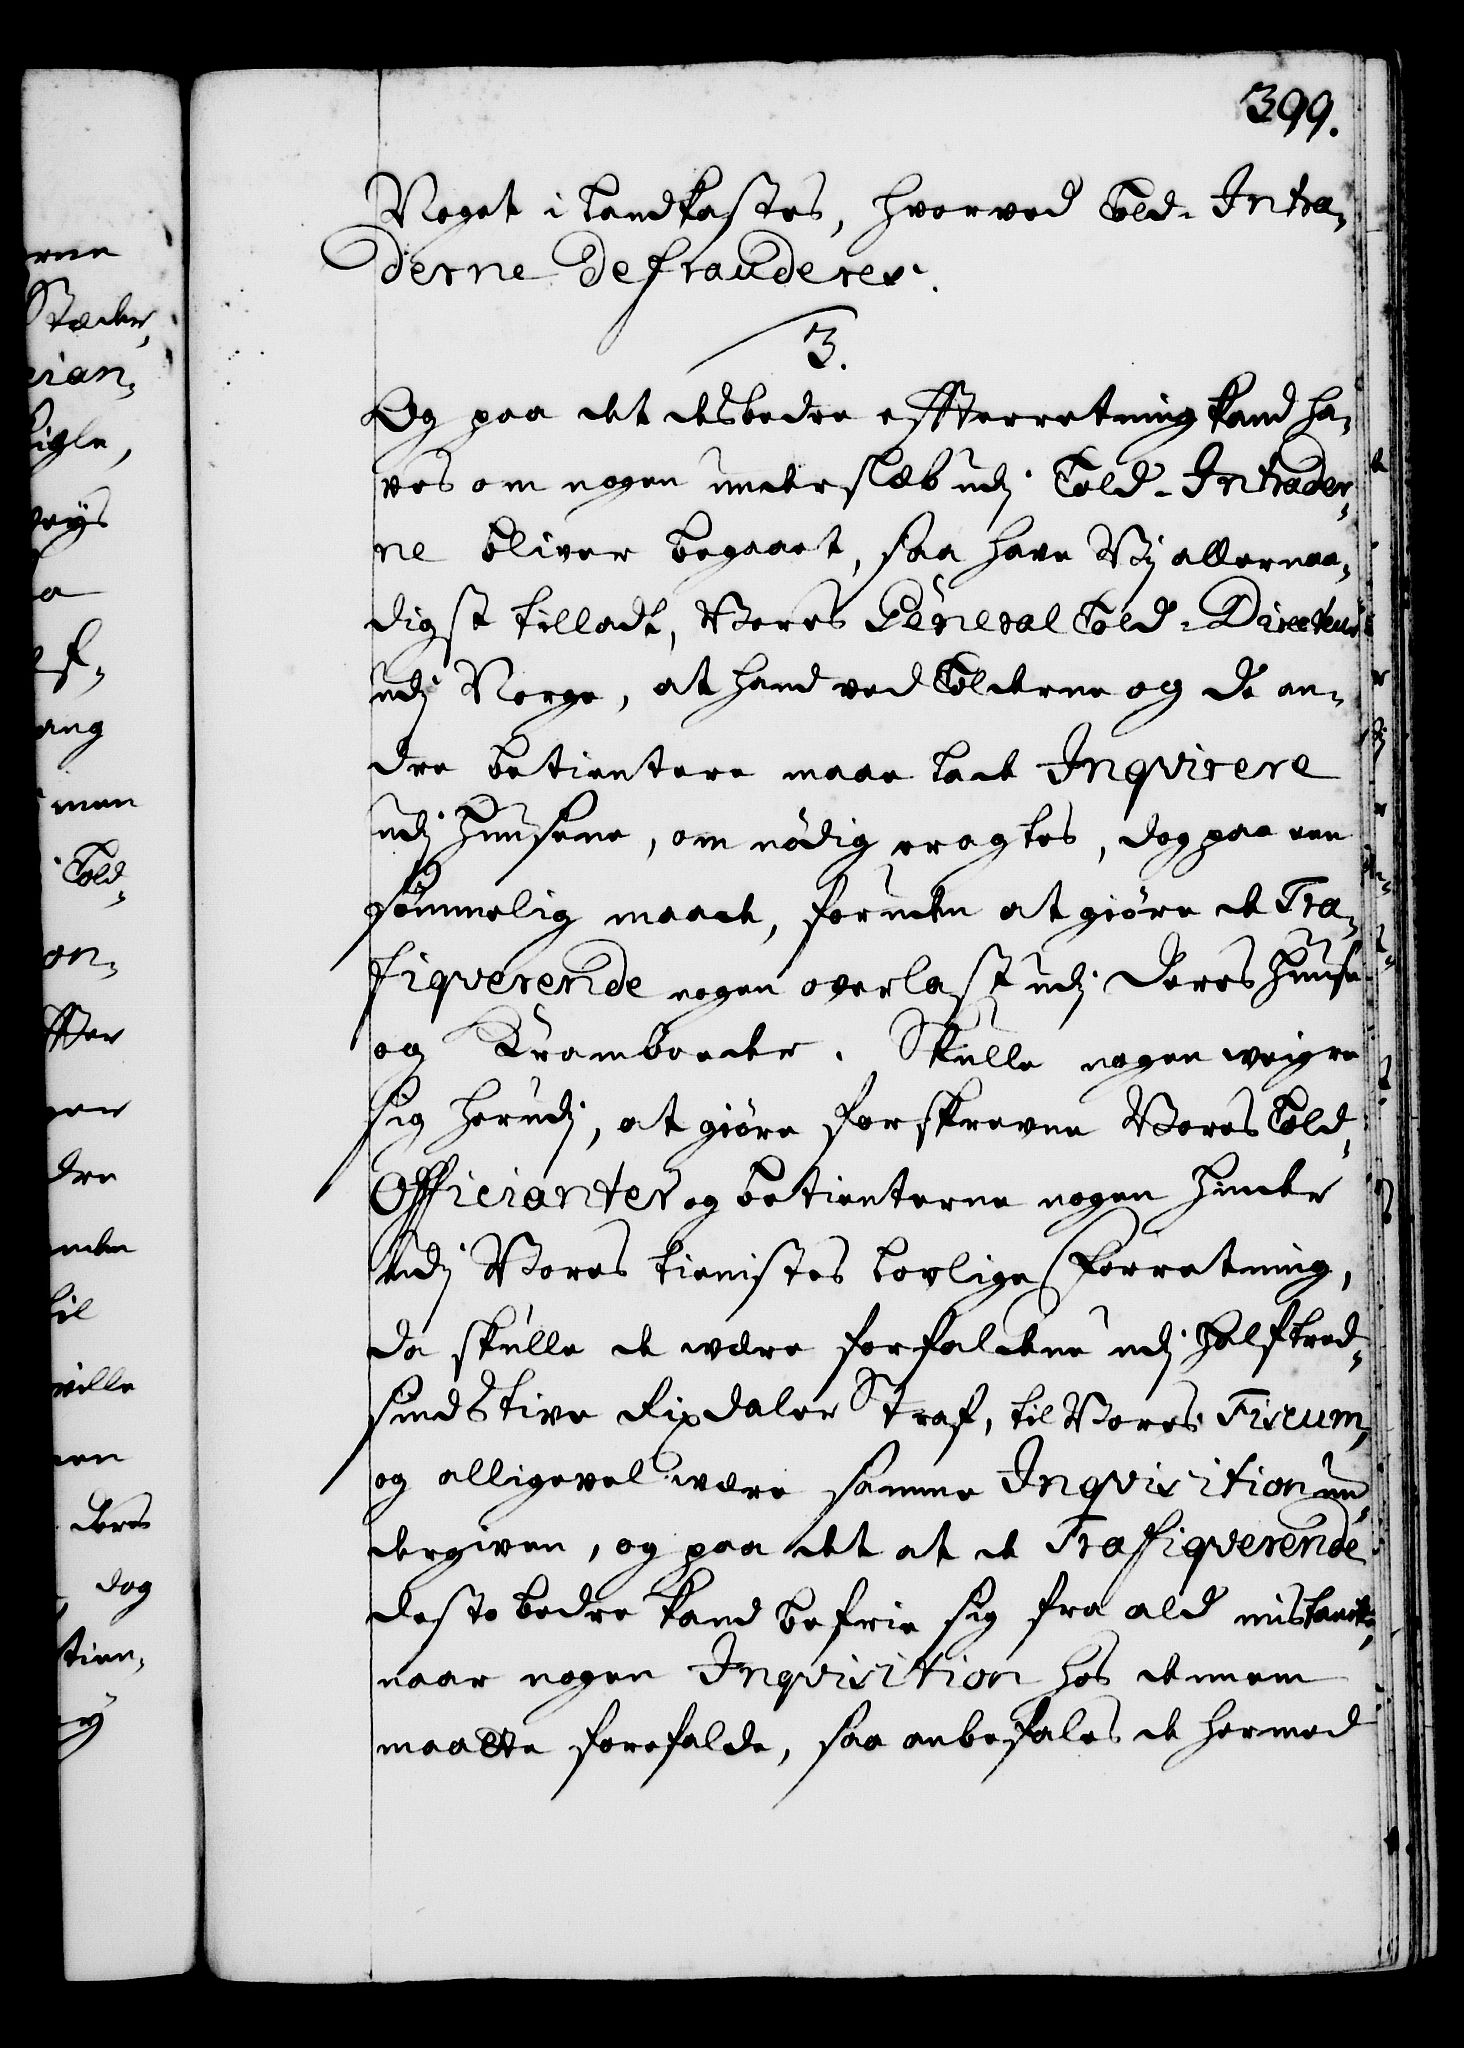 399.
Noget i land kastes, hvorved Told-Intra-
derne defrauderes.
3.
Og paa det desbedre effterretning kand ha-
ves om nogen underslæb udj Told-Intrader-
ne bliver begaaet, saa have Vij allernaa-
digst tilladt, Vores General Told-Directeur
udj Norge, at hand ved Tolderne og de an-
dre betientere maae lade Inqvirere
udj Huusene, om nödig eragtes, dog paa een
sömmelig maade, foruden at giöre de Tra-
fiqverende nogen overlast udj deres Huuse
og Kramboeder. Skulle nogen weigre
sig herudj, at giöre forskrevne Vores Told-
Officianter og betienterne nogen Hinder
udj Vores tienistes lovlige Forretning,
da skulle de være forfaldene udj Halftred-
sindstive Rixdaler Straf, til Vores Fiscum,
og alligevel være samme Inqvisition un-
dergiven, og paa det at de Trafiqverende
deste bedre kand befrie sig fra ald mistancke,
naar nogen Inqvisition hos dennem
maatte forefalde, saa anbefales de hermed
erne
Stæder,
cian-
ang
Told-
on-
dre
til
ville
deres
dog